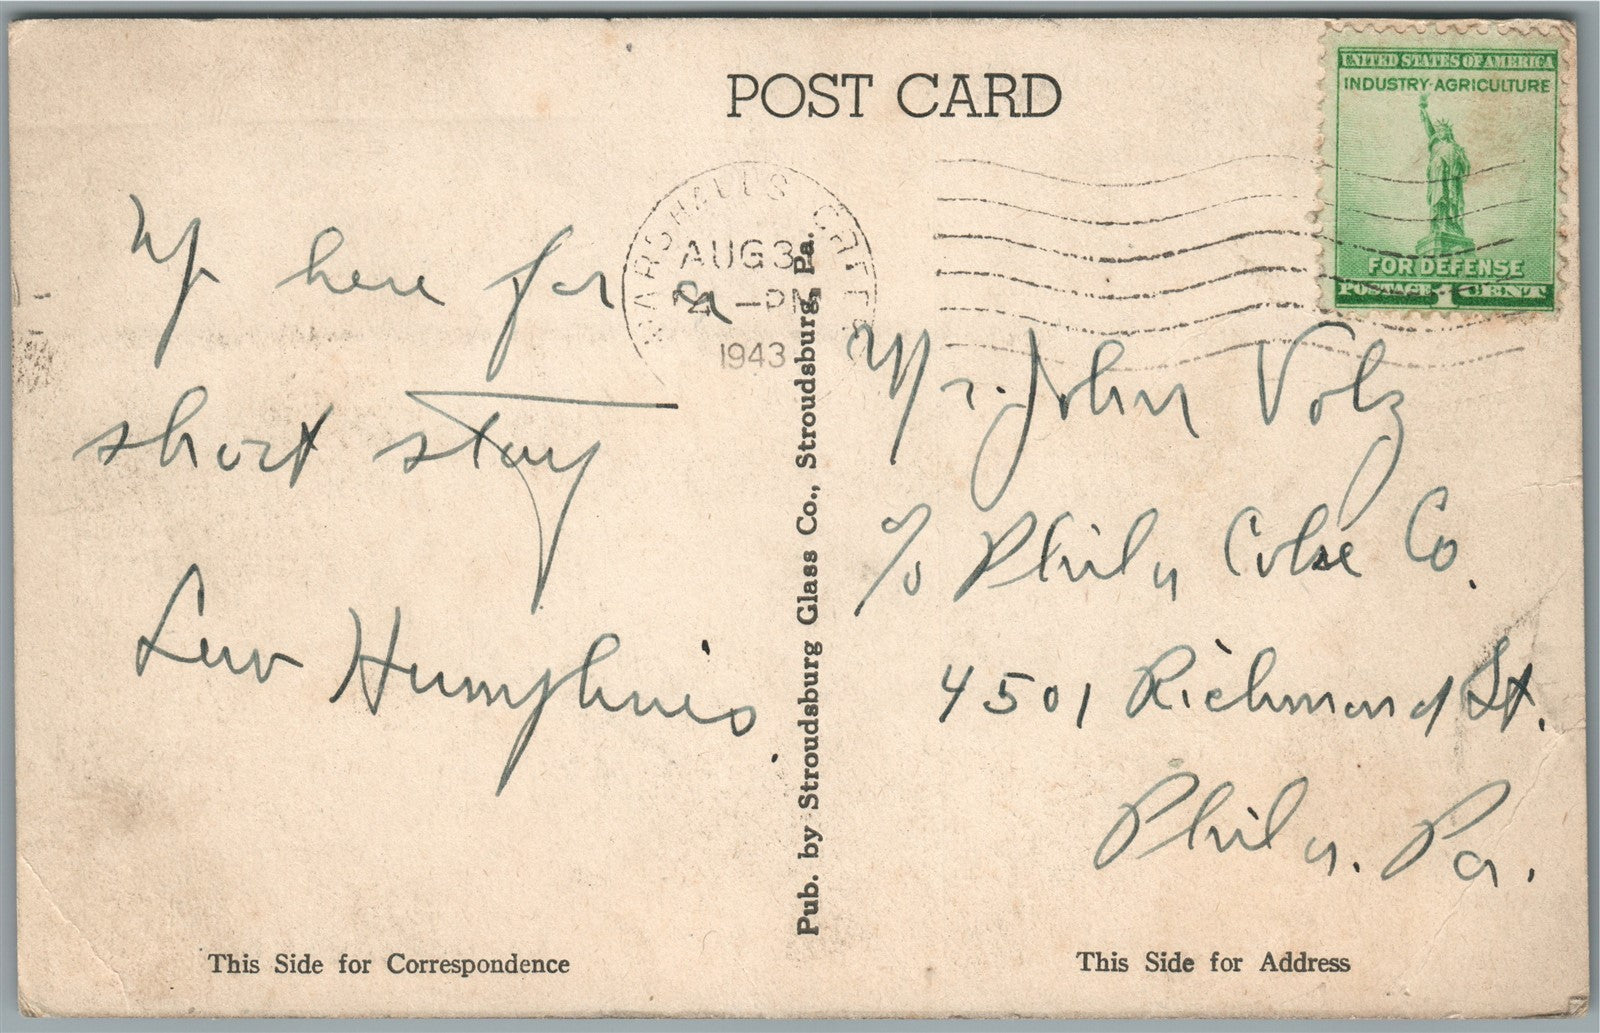 POST CARD
UNITED STATES OF AMERICA
INDUSTRY-AGRICULTURE
FOR DEFENSE
POSTAGE 1 CENT
MARSHALLS CREEK
AUG 3
-PM
1943
Up here for a
short stay
Humphries.
Pub. by Stroudsburg Glass Co., Stroudsburg, Pa.
Mr. John Volz
c/o Phila Coke Co.
4501 Richmond St.
Phila. Pa.
This Side for Correspondence
This Side for Address